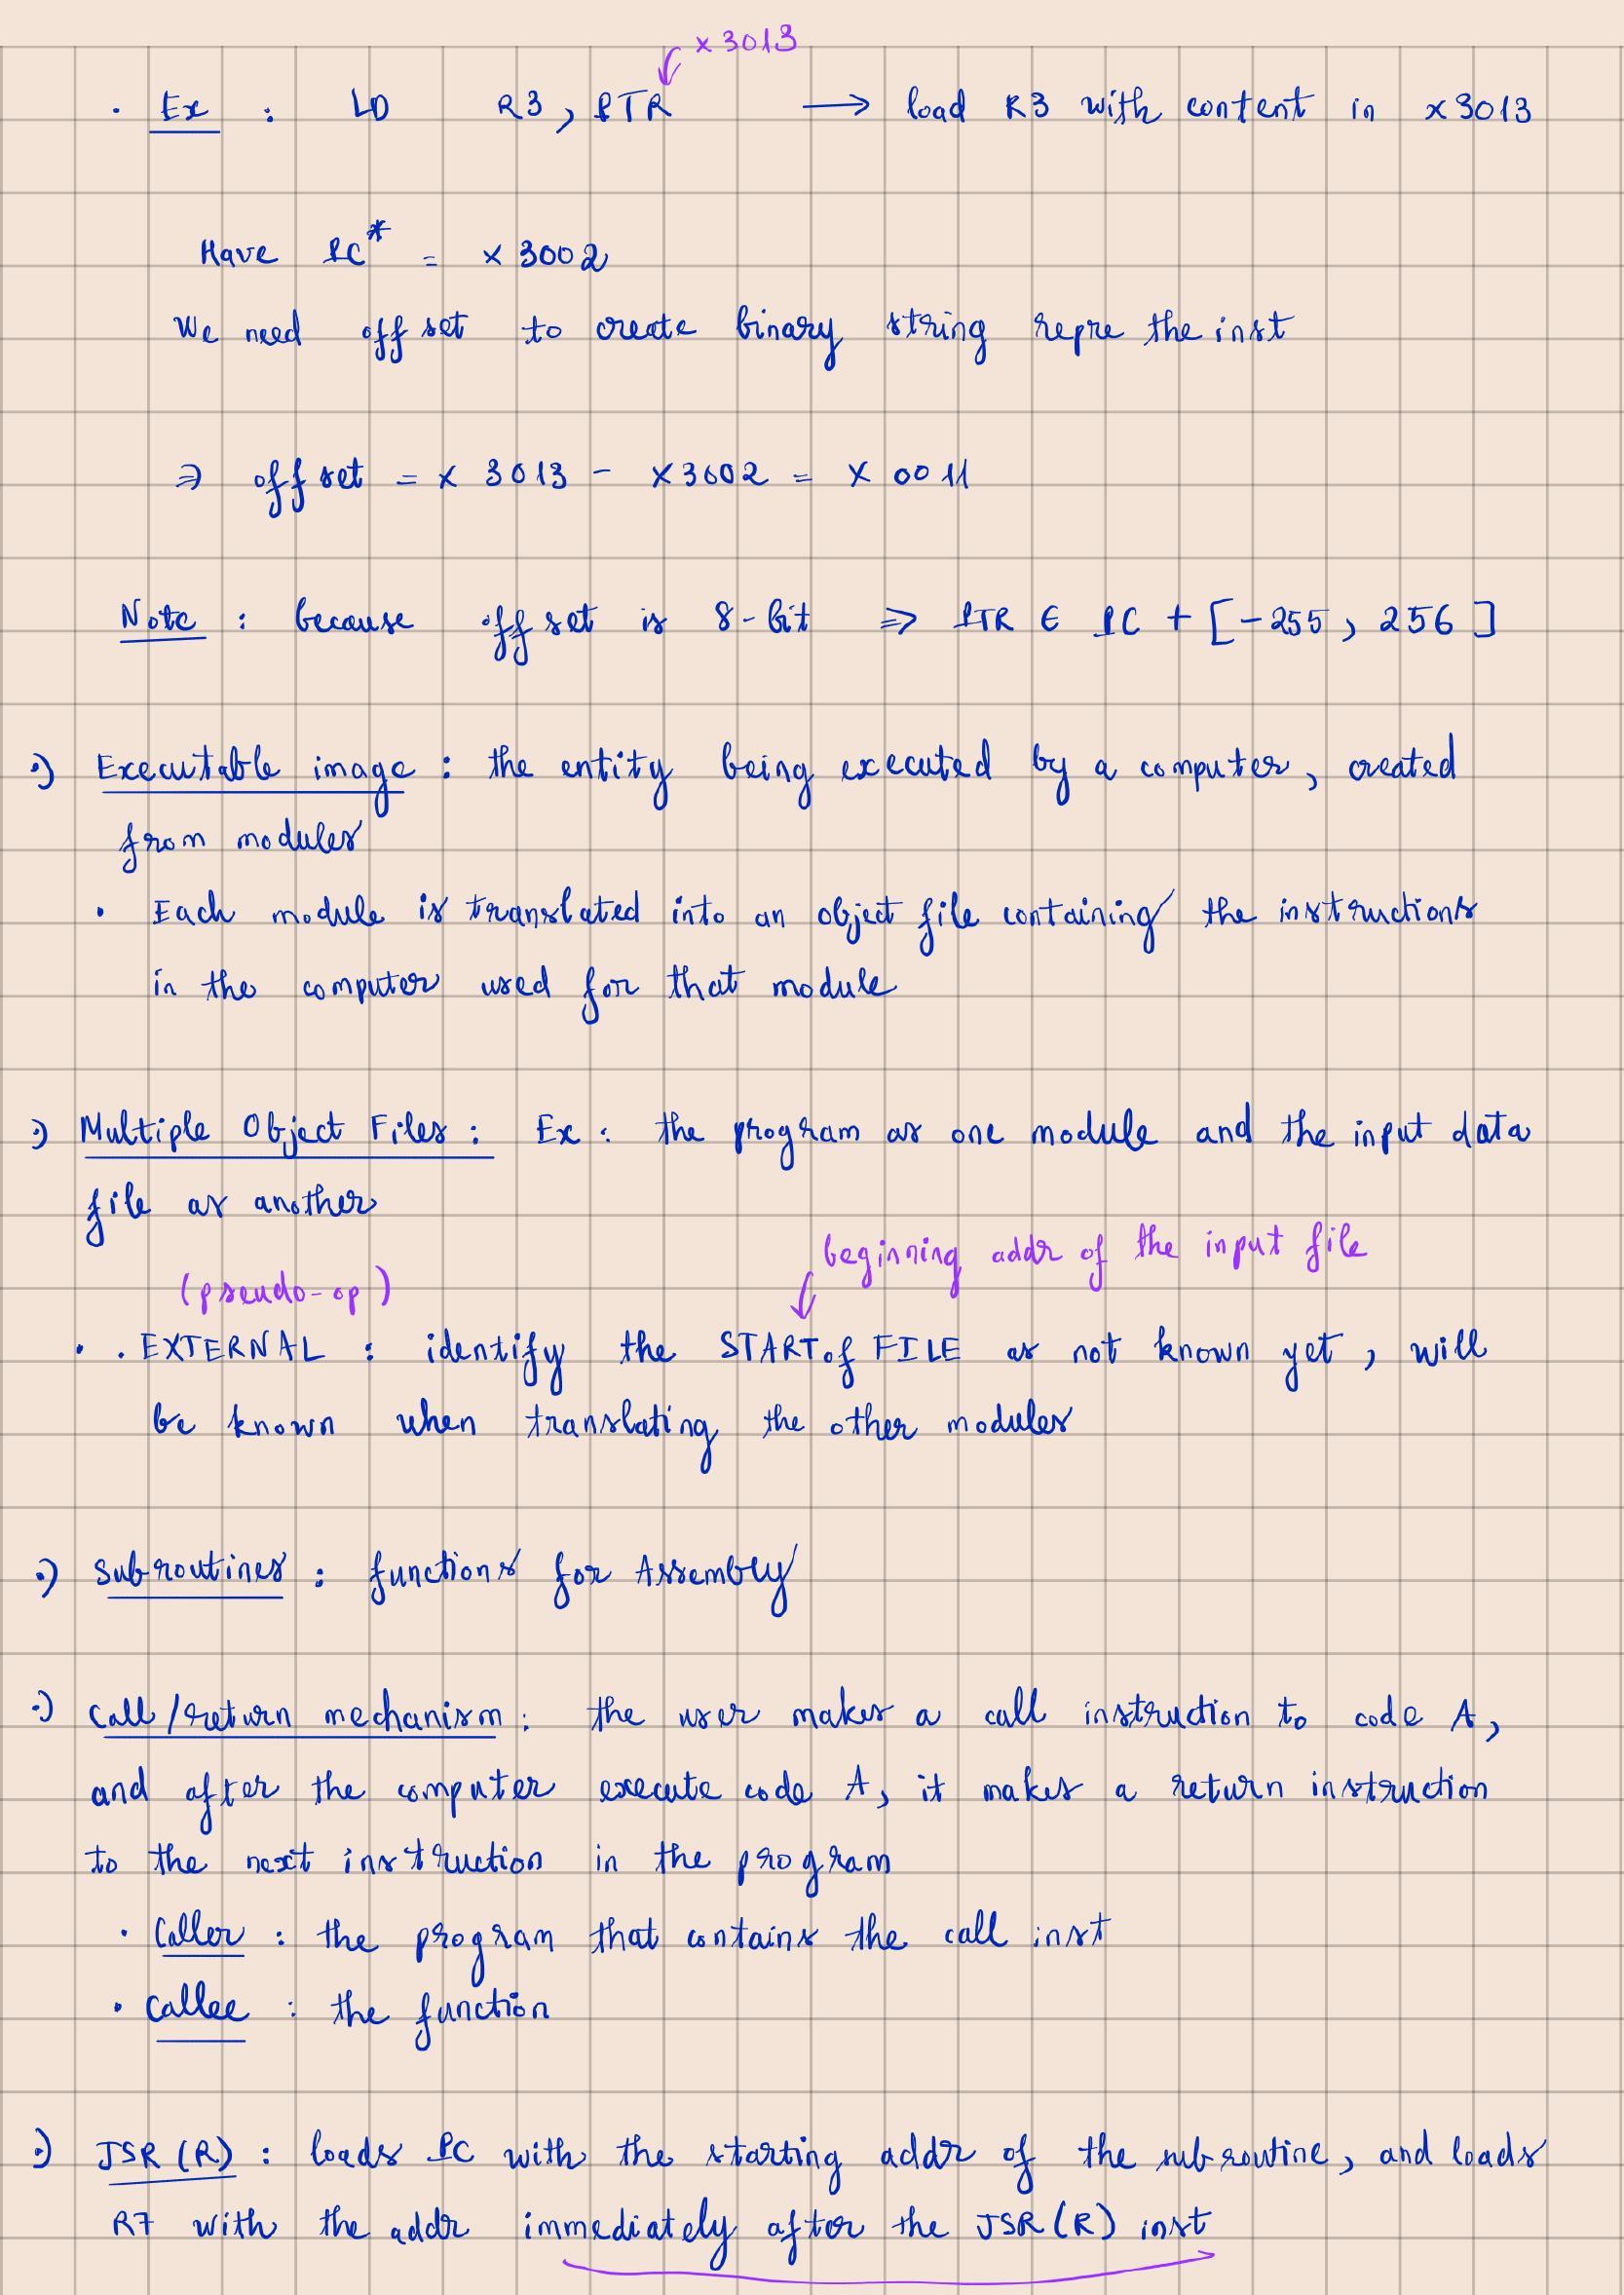 x3013
· Ex : LD R3, PTR → load R3 with content in x3013
Have PC* = x3002
We need offset to create binary string repre the inst
⇒ offset = x3013 - x3002 = x0011
Note : because offset is 8-bit ⇒ PTR ∈ PC + [-255, 256]
·) Executable image : the entity being executed by a computer, created
from modules
· Each module is translated into an object file containing the instructions
in the computer used for that module
·) Multiple Object Files : Ex : the program as one module and the input data
file as another
beginning addr of the input file
(pseudo-op)
· .EXTERNAL : identify the STARTofFILE as not known yet, will
be known when translating the other modules
·) Subroutines : functions for Assembly
·) Call/return mechanism : the user makes a call instruction to code A,
and after the computer execute code A, it makes a return instruction
to the next instruction in the program
· Caller : the program that contains the call inst
· Callee : the function
·) JSR(R) : loads PC with the starting addr of the subroutine, and loads
R7 with the addr immediately after the JSR(R) inst